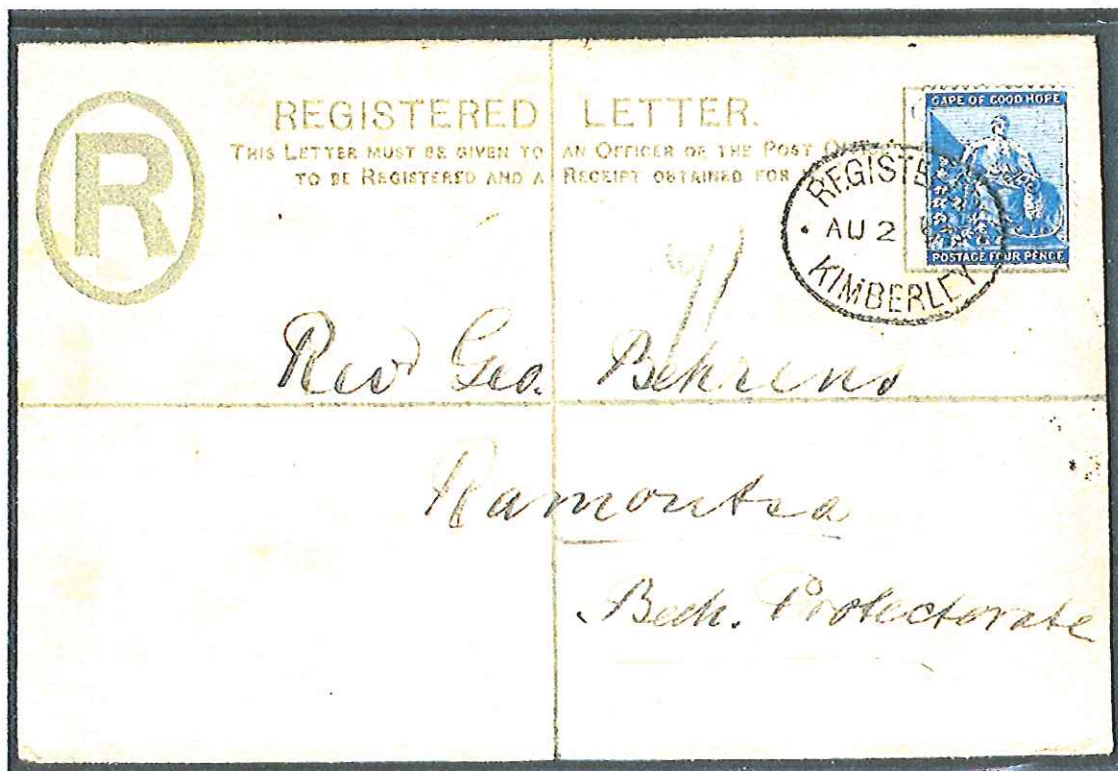 R
REGISTERED LETTER.
THIS LETTER MUST BE GIVEN TO AN OFFICER OF THE POST
TO BE REGISTERED AND A RECEIPT OBTAINED FOR
CAPE OF GOOD HOPE
POSTAGE FOUR PENCE
REGISTERED
AU 2
KIMBERLEY
Revd Geo. Behrens
Ramoutsa
Bech. Protectorate